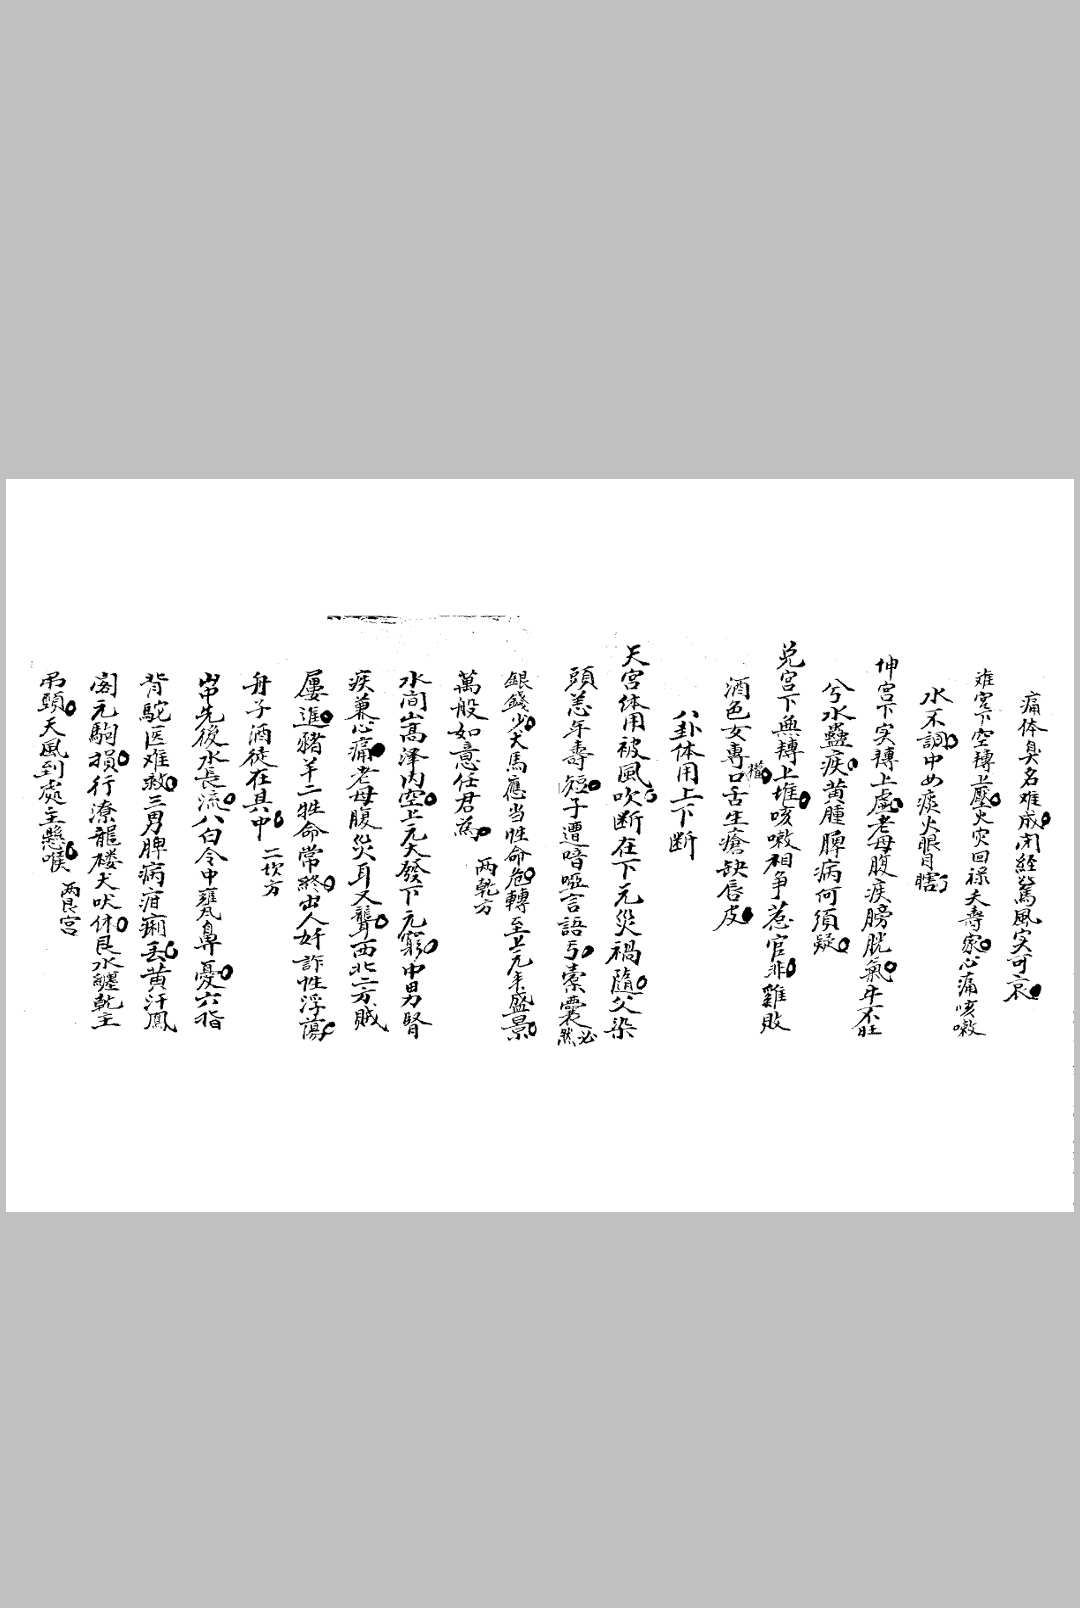 痛体臭名难成。闭经篤風实可哀。
难宫下空轉上壓。火灾回祿夫壽家。心痛咳嗽
水不調。中女痰火眼目瞎。
坤宫下实轉上虚。老母腹疾膀胱氣。牛不旺
兮水蠱疾。黄腫脾病何須疑。
兑宫下無轉上堆。咳嗽相争惹官非。雞敗
酒色女專權。口舌生瘡缺唇皮。
八卦体用上下断
天宫体用被風吹。断在下元災禍隨。父染
頭恙年壽短。子遭喑啞言語亏。槖囊必然
銀錢少。犬馬應当性命危。轉至上元年盛景。
萬般如意任君為。 两乾方
水间山高泽内空。上元大發下元窮。中男腎
疾兼心痛。老母腹災耳又聾。西北二方贼
屢進。豬羊二牲命常終。出人奸詐性浮蕩。
舟子酒徒在其中。 二坎方
山串先後水長流。八白令中甕瓦鼻憂。六指
背駝医难救。三男脾病疳痢丢。黄汗鳳
阁元駒損。行潦龍樓犬吠休。艮水纏乾主
吊頭。天風到處主懸喉。 两艮宫